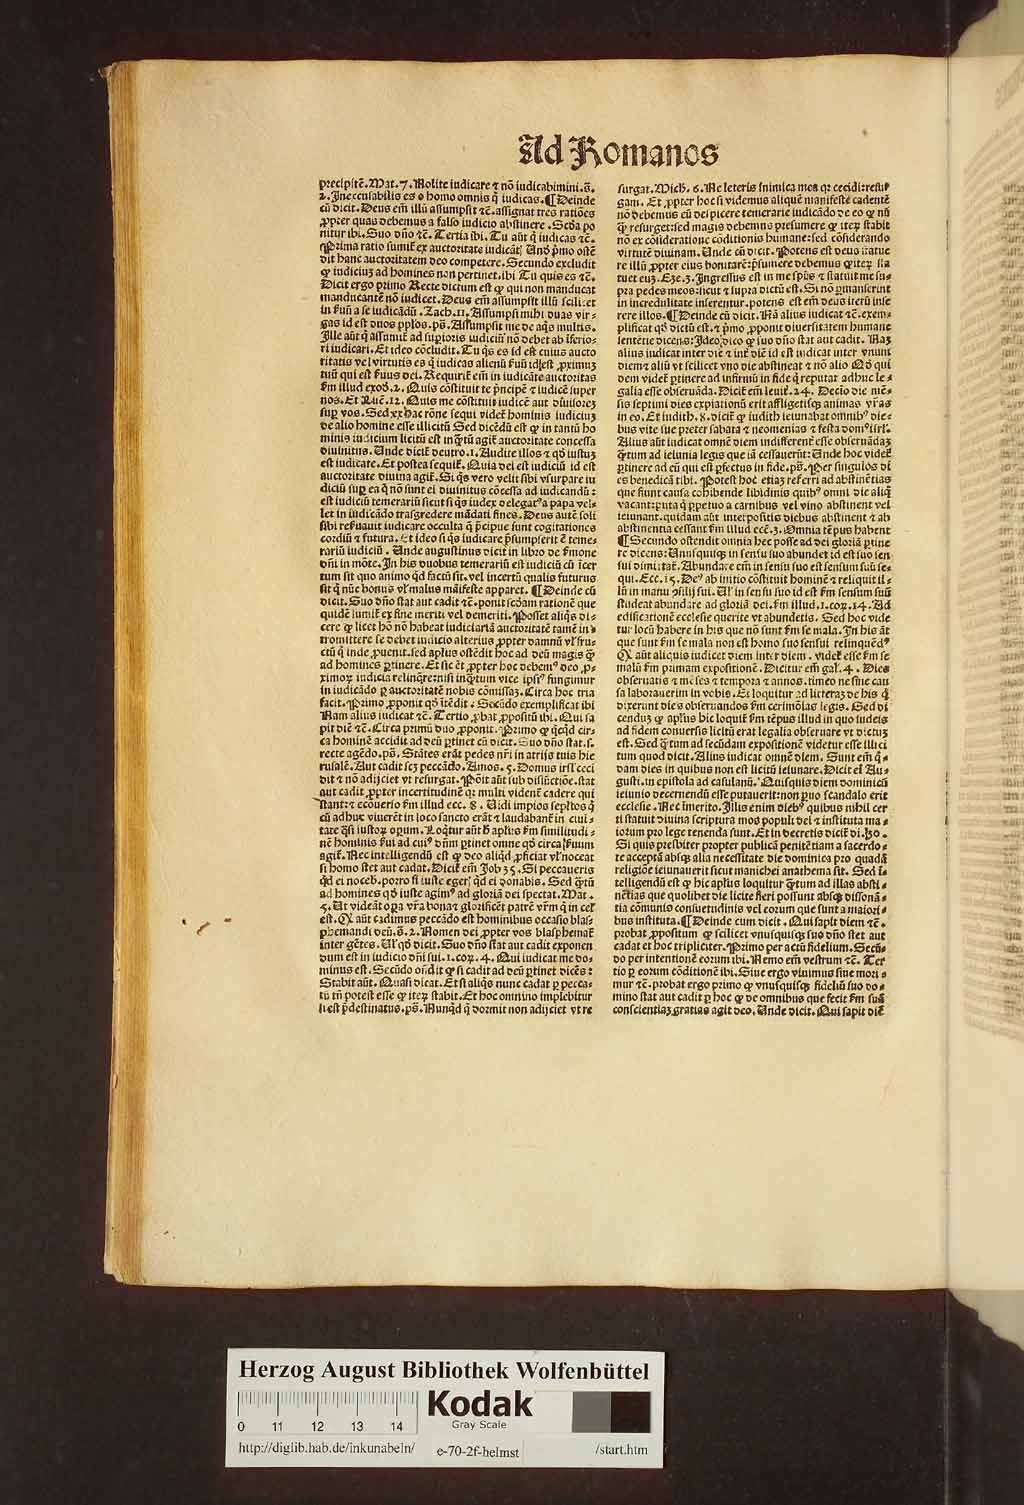 Ad Romanos
precipitē. Mat. 7. Nolite iudicare ⁊ nō iudicabimini. ẜ.
2. Inexcusabilis es o homo omnis q̄ iudicas. ¶ Deinde
cū dicit. Deus em̄ illū assumpsit ⁊c̄. assignat tres ratiōes
ꝓpter quas debemus a falso iudicio abstinere. Scd̄a po
nitur ibi. Suo dn̄o ⁊c̄. Tertia ibi. Tu aūt q̄ iudicas ⁊c̄.
Prima ratio sumit̄ ex auctoritate iudicātis
dit hanc auctoritatem deo competere. Secundo excludit
ꝙ iudiciuȝ ad homines non pertinet. ibi Tu quis es ⁊c̄.
Dicit ergo primo Recte dictum est ꝙ qui non manducat
manducantē nō iudicet. Deus em̄ assumpsit illū scili.
in ẜuū a se iudicādū. Zach. 11. Assumpsi mihi duas vir-
gas id est duos ppl̄os. ps̄. Assumpsit me de aq̄s multis.
Ille aūt q̄ assumit̄ ad suꝑioris iudiciū nō debet ab īferio-
ri iudicari. Et ideo cōcludit. Tu q̄s es id est cuius aucto
ritatis vel virtutis es q̄ iudicas alienū ẜuū id est ꝓximuȝ
tuū qui est ẜuus dei. Requirit̄ em̄ in iudicāte auctoritas
ẜm illud exod̄. 2. Quis cōstituit te p̄ncipē ⁊ iudicē super
nos. Et Luc̄. 12. Quis me cōstituit iudicē aut diuisoreȝ
suꝑ vos. Sed ex hac rōne sequi videt̄ hominis iudiciuȝ
de alio homine esse illicitū Sed dicēdū est ꝙ in tantū ho
minis iudicium licitū est inq̄tū agit̄ auctoritate concessa
diuinitus. Unde dicit̄ deutro. 1. Audite illos ⁊ qd̄ iustuȝ
est iudicate. Et postea sequit̄. Quia dei est iudiciū id est
auctoritate diuina agit̄. Si q̄s vero velit sibi vsurpare iu
diciū suꝑ ea q̄ nō sunt ei diuinitus cōcessa ad iudicandū:
est iudiciū temerariū sicut si q̄s iudex delegatꝰ a papa vel-
let in iudicādo trāsgredere mādati fines. Deus autē soli
sibi reẜuauit iudicare occulta q̄ p̄cipue sunt cogitationes
cordiū ⁊ futura. Et ideo si q̄s iudicare p̄sumpserit ē teme-
rariū iudiciū. Unde augustinus dicit in libro de ẜmone
dn̄i in mōte. In his duobus temerariū est iudiciū cū īcer
tum sit quo animo qd̄ factū sit. vel incertū qualis futurus
sit q̄ nūc bonus vl̓ malus māifeste apparet. ¶ Deinde cū
dicit. Suo dn̄o stat aut cadit ⁊c̄. ponit secd̄am rationē que
quidē sumit̄ ex fine meriti vel demeriti. Posset aliq̄s di-
cere ꝙ licet hō nō habeat iudiciariā auctoritatē tamē in-
tromittere se debet iudicio alterius ꝓpter damnū vl̓ fru-
ctū q̄ inde ꝓuenit. sed apl̄us ostēdit hoc ad deū magis q̄
ad homines ꝑtinere. Et sic
ximoꝝ iudicia relinq̄re: nisi inq̄tum vice ipsiꝰ fungimur
in iudicādo ꝑ auctoritatē nobis cōmissaȝ. Circa hoc tria
facit. Primo ꝓponit qd̄ ītēdit. Secūdo exemplificat ibi
Nam alius iudicat ⁊c̄. Tertio ꝓbat ꝓpositū ibi. Qui sa
pit diē ⁊c̄. Circa primū duo ꝓponit. Primo ꝙ q̄cqd̄ cir-
ca hominē accidit ad deū ꝑtinet cū dicit. Suo dn̄o stat. s.
recte agēdo. ps̄. Stātes erāt pedes nr̄i in atrijs tuis hie
rusalē. Aut cadit scȝ peccādo. Amos. 5. Domus isrl̄ ceci
dit ⁊ nō adijciet vt resurgat. Ponit aūt sub disiūctiōe. stat
aut cadit ꝓpter incertitudinē qꝛ multi videnē cadere qui
stant: ⁊ econuerso ẜm illud ecc. 8. Uidi impios sepl̄tos q̄
cū adhuc viuerēt in loco sancto erāt ⁊ laudabanī in ciui-
tate q̄si iustoꝝ oꝑum. Loqt̄ur aūt ħ apl̄us ẜm similitudi-
nē hominis ẜui ad cuiꝰ dn̄m ꝑtinet omne qd̄ circa ẜuum
agit̄. Nec intelligendū est ꝙ deo aliqd̄ ꝓficiat vl̓ noceat
si homo stet aut cadat. Dicit̄ em̄ Job 35. Si peccaueris
qd̄ ei noceb̄. porro si iuste egeris qd̄ ei donabis. Sed q̄tū
ad homines qd̄ iuste agimꝰ ad gloriā dei spectat. Mat.
5. Ut videāt oꝑa vr̄a bona ⁊ glorificēt patrē vr̄m q̄ in cel̓
est. Qd̄ aūt cadimus peccādo est hominibus occasio blas
phemandi deū. ẜ. 2. Nomen dei ꝓpter vos blasphemat̄
inter gētes. Ul̓ qd̄ dicit. Suo dn̄o stat aut cadit exponen
dum est in iudicio dn̄i sui. 1. cor̄. 4. Qui iudicat me do-
minus est. Secūdo on̄dit ꝙ si cadit ad deū ꝑtinet dicēs:
Stabit aūt. Quasi dicat. Etsi aliqs̄ nunc cadat ꝑ pecca-
tū tn̄ potest esse ꝙ iteꝝ stabit. Et hoc omnino implebitur
si est p̄destinatus. ps̄. Nunqd̄ q̄ dormit non adijciet vt re
surgat. Mich. 6. Ne leteris inimica mea qꝛ cecidi: resur
gam. Et ꝓpter hoc si videmus aliquē manifeste cadentē
nō debemus cū despicere temerarie iudicādo de eo ꝙ nū
q̄ resurget: sed magis debemus presumere ꝙ iteꝝ stabit
nō ex cōsideratione cōditionis humane: sed cōsiderando
virtutē diuinam. Unde cū dicit. Potens est deus statue
re illū ꝓpter eius bonitatē: p̄sumere debemus ꝙ iteꝝ sta
tuet euȝ. Eze. 3. Ingressus est in me spūs ⁊ statuit me su-
pra pedes meos: sicut ⁊ supra dictū est. Si nō ꝑmanserint
in incredulitate inserentur. potens est em̄ deus iterū inse
rere illos. ¶ Deinde cū dicit. Nā alius iudicat ⁊c̄. exem-
plificat qd̄ dictū est. ⁊ p̄mo ꝓponit diuersitatem humane
sententie dicens: Ideo dico ꝙ suo dn̄o stat aut cadit. Naȝ
alius iudicat inter diē ⁊ int̄ diē id est iudicat inter vnum
diem ⁊ aliū vt scilicet vno die abstineat ⁊ nō alio Qd̄ qui
dem videt̄ ꝑtinere ad infirmū in fide q̄ reputat adhuc le-
galia esse obseruāda. Dicit̄ em̄ leuit̄. 24. Decio die mē-
sis septimi dies expiationū erit affligetisqꝫ animas vr̄as
in eo. Et iudith. 8. dicit̄ ꝙ iudith ieiunabat omnibꝰ die-
bus vite sue preter sabata ⁊ neomenias ⁊ festa domꝰ isrl̄.
Alius aūt iudicat omnē diem indifferent̄ esse obseruādaȝ
q̄tum ad ieiunia legus que iā cessauerūt: Unde hoc videt̄
ꝑtinere ad eū qui est ꝑfectus in fide. ps̄. Per singulos di
es benedicā tibi. Potest hoc etiaȝ referri ad abstinētias
que fiunt causa cohibende libidinis quibꝰ omni die aliq̄
vacant: puta q̄ ꝑpetuo a carnibus vel vino abstinent vel
ieiunant. quidam aūt interpositis diebus abstinent ⁊ ab
abstinentia cessant ẜm illud eccl̄. 3. Omnia tēpus habent
¶ Secundo ostendit omnia hec posse ad dei gloriā ꝑtine
re dicens: Unusquisqꝫ in sensu suo abundet id est suo sen
sui dimittat̄. Abundare em̄ in sensu suo est sensum suū se-
qui. Ecc. 15. Deꝰ ab initio cōstituit hominē ⁊ reliquit il-
lū in manu ↄsilij sui. Ul̓ in sensu suo id est ẜm sensum suū
studeat abundare ad gloriā dei. ẜm illud. 1. cor̄. 14. Ad
edificationē ecclesie querite vt abundetis. Sed hoc vide
tur locū habere in his que nō sunt ẜm se mala. In his āt
que sunt ẜm se mala non est homo suo sensui relinquēdꝰ
Qd̄ aūt aliquis iudicet diem inter diem. videt̄ esse ẜm se
malū ẜm primam expositionē. Dicitur em̄ gal̓. 4. Dies
obseruatis ⁊ mēses ⁊ tempora ⁊ annos. timeo ne sine cau
sa laborauerim in vobis. Et loquitur ad litteraȝ de his q̄
dixerunt dies obseruandos ẜm cerimōias legis. Sed di
cenduȝ ꝙ apl̄us hic loquit̄ ẜm tēpus illud in quo iudeis
ad fidem conuersis licitū erat legalia obseruare vt dictuȝ
est. Sed q̄tum ad secūdam expositionē videtur esse illici
tum quod dicit. Alius iudicat omnē diem. Sunt em̄ q̄-
dam dies in quibus non est licitū ieiunare. Dicit em̄ Au-
gusti. in epistola ad casulanū. Quisquis diem dominicū
ieiunio decernendū esse putauerit: non paruo scandalo erit
ecclesie. Nec īmerito. Illis enim diebꝰ quibus nihil cer
ti statuit diuina scriptura mos populi dei ⁊ instituta ma-
iorum pro lege tenenda sunt. Et in decretis dicit̄ di. 30.
Si quis presbiter propter publicā penitētiam a sacerdo-
te acceptā absqꝫ alia necessitate die dominica pro quadā
religiōe ieiunauerit sicut manichei anathema sit. Sed ī-
telligendū est ꝙ hic apl̄us loquitur q̄tum ad illas absti-
nētias que quolibet die licite fieri possunt absqꝫ dissonā-
tia cōmunis consuetudinis vel eorum que sunt a maiori-
bus instituta. ¶ Deinde cum dicit. Qui sapit diem ⁊c̄.
probat ꝓpositum ꝙ scilicet vnusquisqꝫ suo dn̄o stet aut
cadat et hoc tripliciter. Primo per actū fidelium. Secū-
do per intentionē eorum ibi. Nemo em̄ vestrum ⁊c̄. Ter
tio ꝑ eorum cōditionē ibi. Siue ergo viuimus siue mori-
mur ⁊c̄. probat ergo primo ꝙ vnusquisqꝫ fideliū suo do-
mino stat aut cadit ꝑ hoc ꝙ de omnibus que fecit ẜm suā
conscientiaȝ gratias agit deo. Unde dicit. Qui sapit diē
Herzog August Bibliothek Wolfenbüttel
0 11 12 13 14
Kodak
Gray Scale
http://diglib.hab.de/inkunabeln/ e-70-2f-helmst /start.htm